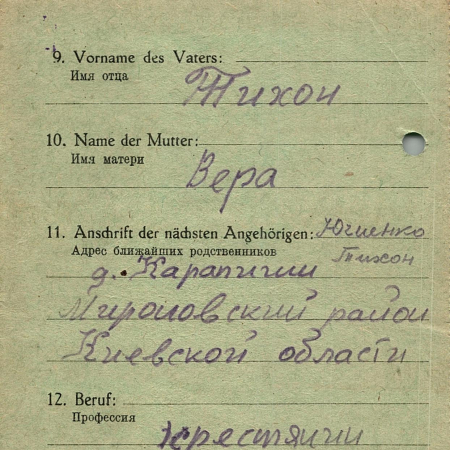 9. Vorname des Vaters:
Имя отца
Тихон
10. Name der Mutter:
Имя матери
Вера
11. Anschrift der nächsten Angehörigen:
Адрес ближайших родственников
Тихон
д. Карапиши
Мироновский район
Киевской области
12. Beruf:
Профессия
крестянин